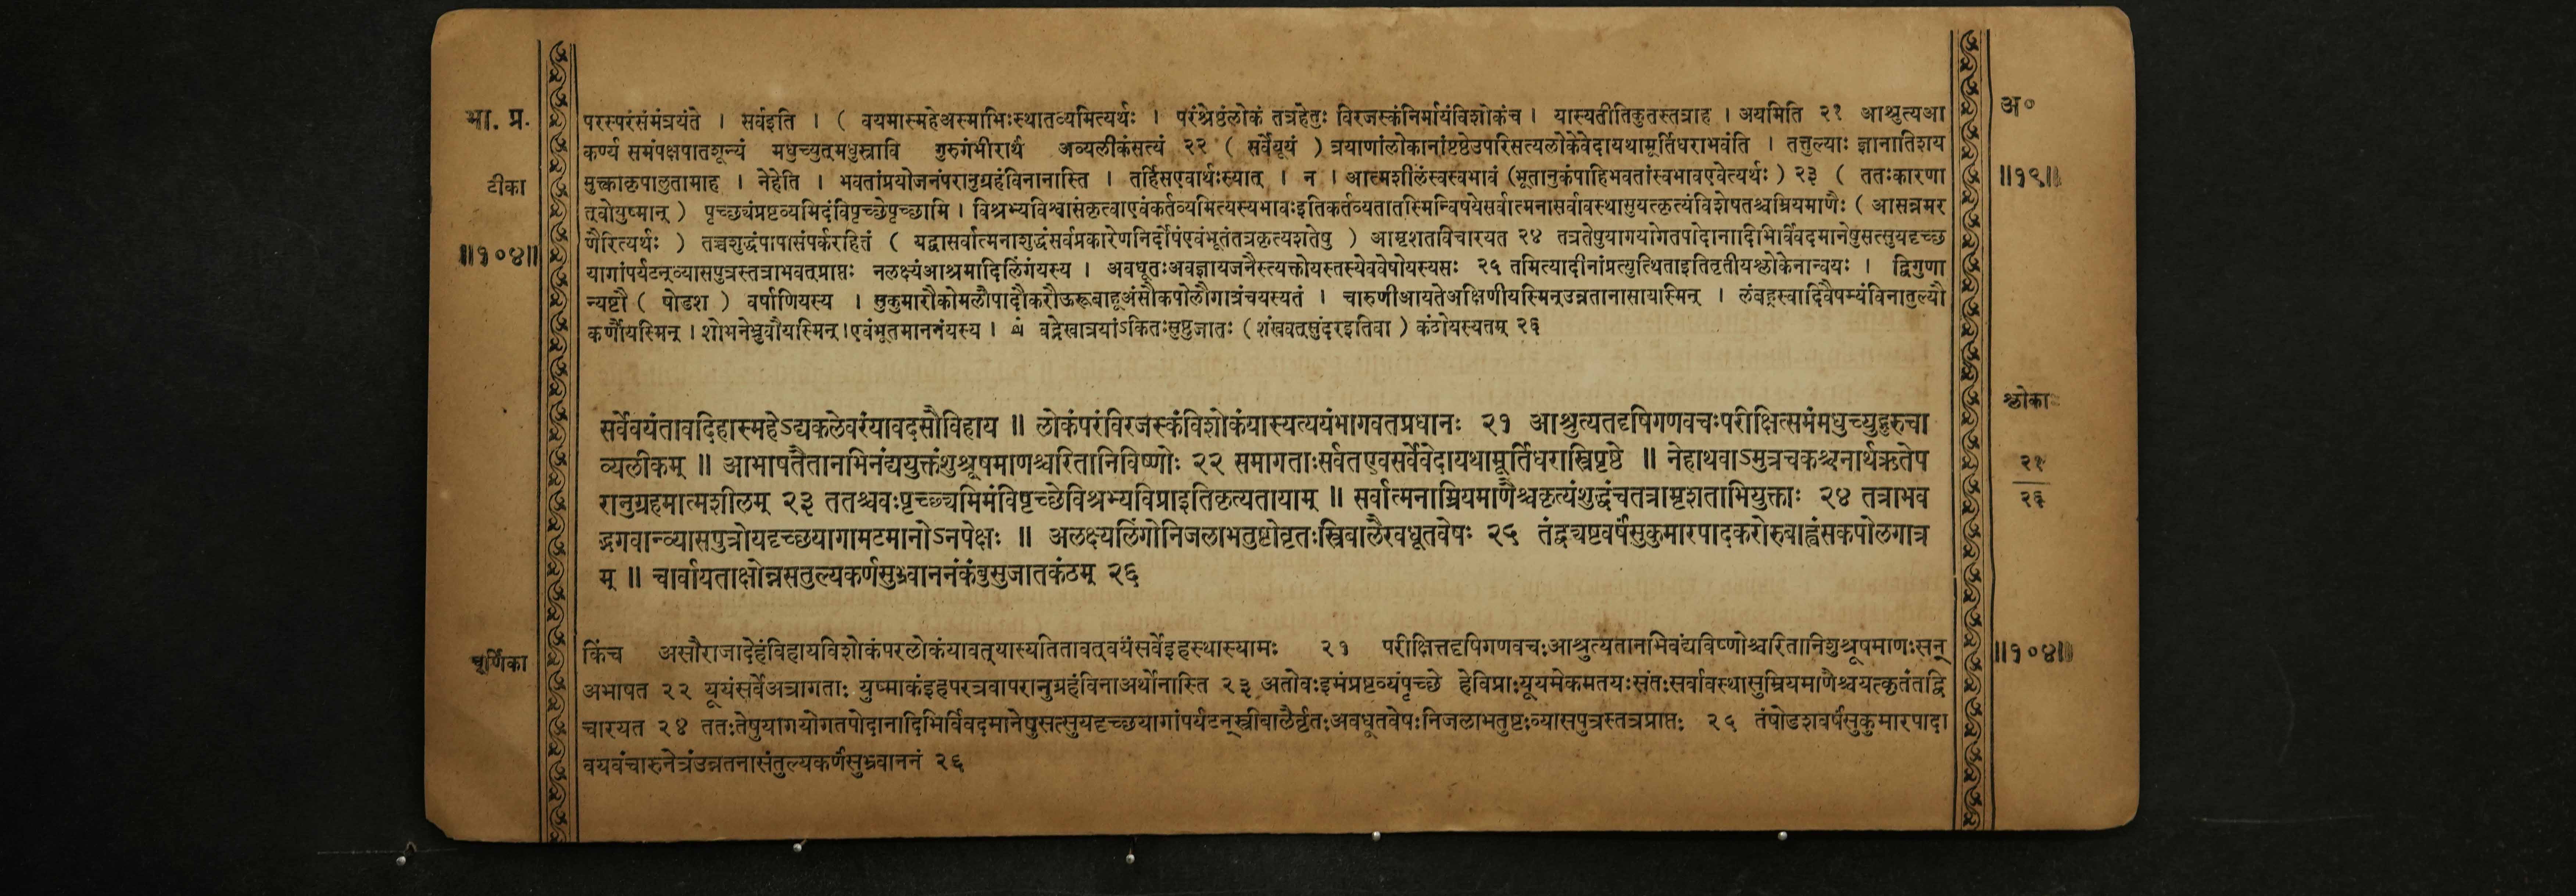 भा. प्र.
टीका
॥१०४॥
परस्परंसंमंत्रयंते । सर्वइति । ( वयमास्महेअस्माभिःस्थातव्यमित्यर्थः । परंश्रेष्ठंलोकं तत्रहेतुः विरजस्कंनिर्मायंविशोकंच । यास्यतीतिकुतस्तत्राह । अयमिति २१ आश्रुत्यआ
कर्ण्य समंपक्षपातशून्यं मधुच्युत्मधुस्रावि गुरुगंभीरार्थं अव्यलीकंसत्यं २२ ( सर्वेयूयं ) त्रयाणांलोकानांपृष्ठेउपरिसत्यलोकेवेदायथामूर्तिधराभवंति । तत्तुल्याः ज्ञानातिशय
मुक्त्वाकृपालुतामाह । नेहेति । भवतांप्रयोजनंपरानुग्रहंविनानास्ति । तर्हिसएवार्थःस्यात् । न । आत्मशीलंस्वस्वभावं (भूतानुकंपाहिभवतांस्वभावएवेत्यर्थः ) २३ ( ततःकारणा
त्वोयुष्मान् ) पृच्छ्यंप्रष्टव्यमिदंविपृच्छेपृच्छामि । विश्रभ्यविश्वासंकृत्वाएवंकर्तव्यमित्यस्यभावःइतिकर्तव्यतातस्मिन्विषयेसर्वात्मनासर्वावस्थासुयत्कृत्यंविशेषतश्चम्रियमाणैः ( आसन्नमर
णैरित्यर्थः ) तच्चशुद्धंपापासंपर्करहितं ( यद्वासर्वात्मनाशुद्धंसर्वप्रकारेणनिर्दोषंएवंभूतंतत्रकृत्यशतेषु ) आमृशतविचारयत २४ तत्रतेषुयागयोगतपोदानादिभिर्विवदमानेषुसत्सुयदृच्छ
यागांपर्यटन्व्यासपुत्रस्तत्राभवत्प्राप्तः नलक्ष्यंआश्रमादिलिंगंयस्य । अवधूतःअवज्ञायजनैस्त्यक्तोयस्तस्येववेषोयस्यसः २५ तमित्यादीनांप्रत्युत्थिताइतितृतीयश्लोकेनान्वयः । द्विगुणा
न्यष्टौ ( षोडश ) वर्षाणियस्य । सुकुमारौकोमलौपादौकरौऊरूबाहूअंसौकपोलौगात्रंचयस्यतं । चारुणीआयतेअक्षिणीयस्मिन्उन्नतानासायास्मिन् । लंबह्रस्वादिवैषम्यंविनातुल्यौ
कर्णौयस्मिन् । शोभनेभ्रुवौयस्मिन्।एवंभूतमाननंयस्य । वद्रेखात्रयांऽकितःसुष्ठुजातः (शंखवत्सुंदरइतिवा ) कंठोयस्यतम् २६
सर्वेवयंतावदिहास्महेऽद्यकलेवरंयावदसौविहाय ॥ लोकंपरंविरजस्कंविशोकंयास्यत्ययंभागवतप्रधानः २१ आश्रुत्यतदृषिगणवचःपरीक्षित्समंमधुच्युद्गुरुचा
व्यलीकम् ॥ आभाषतैतानभिनंद्ययुक्तंशुश्रूषमाणश्चरितानिविष्णोः २२ समागताःसर्वतएवसर्वेवेदायथामूर्तिधरास्त्रिपृष्ठे ॥ नेहाथवाऽमुत्रचकश्चनार्थऋतेप
रानुग्रहमात्मशीलम् २३ ततश्चवःपृच्छ्यमिमंविपृच्छेविश्रभ्यविप्राइतिकृत्यतायाम् ॥ सर्वात्मनाम्रियमाणैश्चकृत्यंशुद्धंचतत्रामृशताभियुक्ताः २४ तत्राभव
द्भगवान्व्यासपुत्रोयदृच्छयागामटमानोऽनपेक्षः ॥ अलक्ष्यलिंगोनिजलाभतुष्टोवृतःस्त्रिबालैरवधूतवेषः २५ तंद्व्यष्टवर्षंसुकुमारपादकरोरुबाह्वंसकपोलगात्र
म् ॥ चार्वायताक्षोन्नसतुल्यकर्णसुभ्र्वाननंकंबुसुजातकंठम् २६
चूर्णिका
किंच असौराजादेहंविहायविशोकंपरलोकंयावत्यास्यतितावत्वयंसर्वेइहस्थास्यामः २१ परीक्षित्तदृषिगणवचःआश्रुत्यतानभिवंद्यविष्णोश्चरितानिशुश्रूषमाणःसन्
अभाषत २२ यूयंसर्वेअत्रागताः युष्माकंइहपरत्रवापरानुग्रहंविनाअर्थोनास्ति २३ अतोवःइमंप्रष्टव्यंपृच्छे हेविप्राःयूयमेकमतयःसंतःसर्वावस्थासुम्रियमाणैश्चयत्कृतंतद्वि
चारयत २४ ततःतेषुयागयोगतपोदानादिभिर्विवदमानेषुसत्सुयदृच्छयागांपर्यटन्स्त्रीबालैर्वृतःअवधूतवेषःनिजलाभतुष्टःव्यासपुत्रस्तत्रप्राप्तः २५ तंषोडशवर्षंसुकुमारपादा
वयवंचारुनेत्रंउन्नतनासंतुल्यकर्णंसुभ्र्वाननं २६
अ०
॥१९॥
श्लोका
२१
२६
॥१०४॥